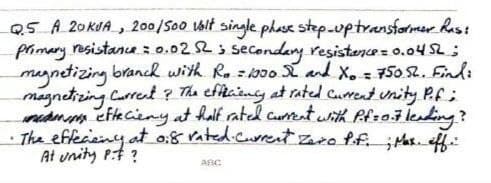 Q.5 A 20KVA, 200/500 Volt single phase step-up transformer has:
primary resistance = 0.02 Ω ; secondary resistance = 0.04 Ω ;
magnetizing branch with Ro = 1000 Ω and Xo = 750 Ω. Find:
magnetizing Current ? The efficiency at rated current unity P.f ;
efficiency at half rated current with P.f = 0.7 leading ?
. The effeciency at 0.8 rated-Current Zero P.f. ; Max. eff.:
At unity P.f ?
ABC